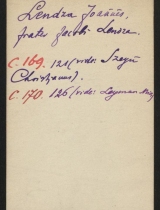 Lendza Joannis,
frater Jacobi Lendza.
C. 169. 121 (vide: Szegü
Christianus).
C. 170. 126 (vide: